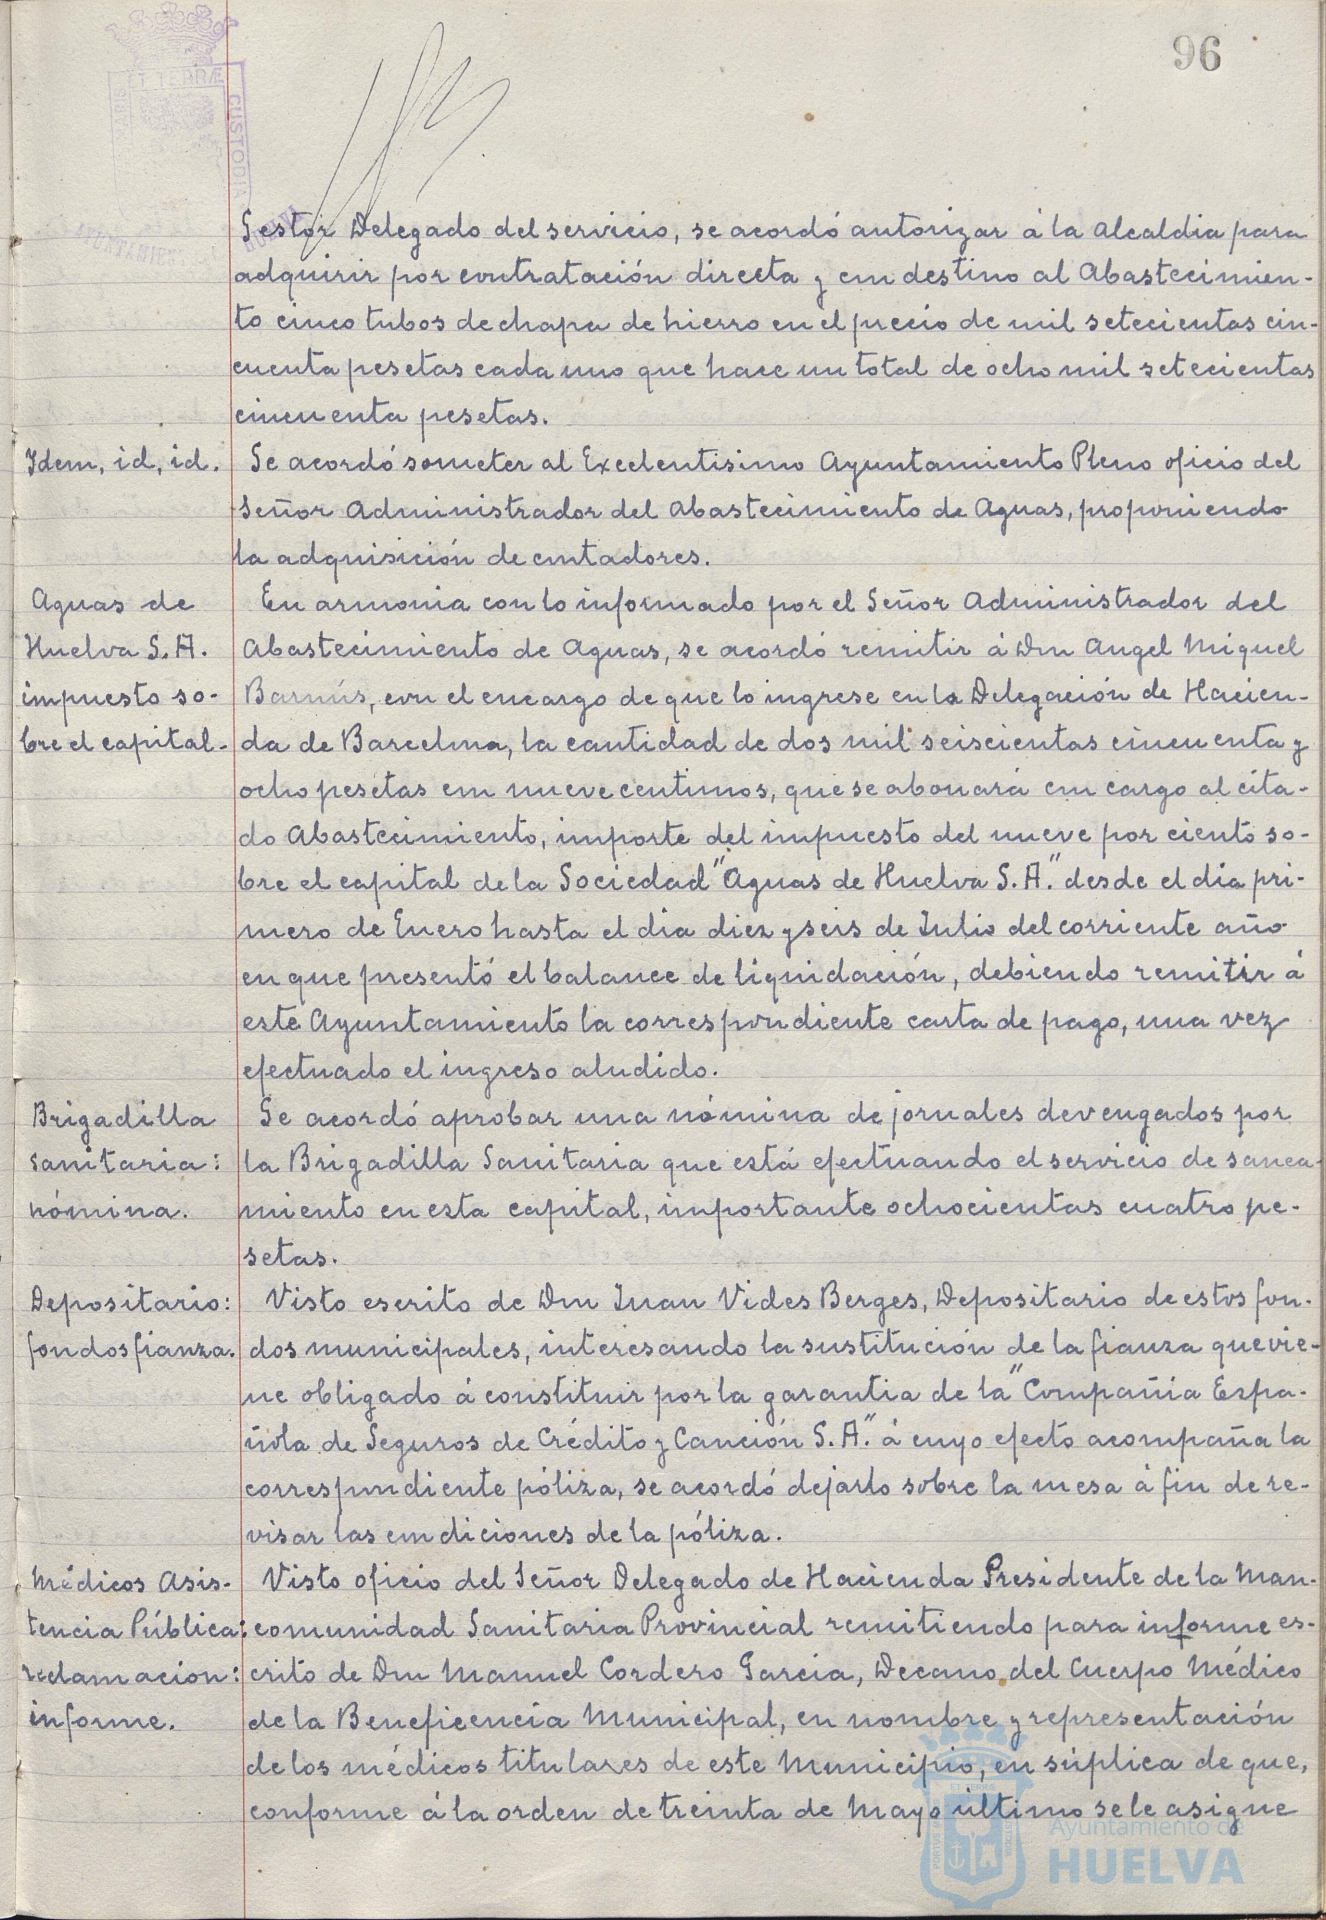 96
ET TERRÆ
CUSTODIA
AYUNTAMIENTO
HUELVA
Gestor Delegado del servicio, se acordó autorizar á la Alcaldia para
adquirir por contratación directa y con destino al Abastecimien-
to cinco tubos de chapa de hierro en el precio de mil setecientas cin-
cuenta pesetas cada uno que hace un total de ocho mil setecientas
cincuenta pesetas.
Idem, id, id.
Se acordó someter al Excelentisimo Ayuntamiento Pleno oficio del
Señor Administrador del Abastecimiento de Aguas, proponiendo
la adquisición de contadores.
Aguas de
Huelva S.A.
impuesto so-
bre el capital.
En armonia con lo informado por el Señor Administrador del
Abastecimiento de Aguas, se acordó remitir á Don Angel Miguel
Barnús, con el encargo de que lo ingrese en la Delegación de Hacien-
da de Barcelona, la cantidad de dos mil seiscientas cincuenta y
ocho pesetas con nueve centimos, que se abonará con cargo al cita-
do Abastecimiento, importe del impuesto del nueve por ciento so-
bre el capital de la Sociedad "Aguas de Huelva S.A." desde el dia pri-
mero de Enero hasta el dia diez y seis de Julio del corriente año
en que presentó el balance de liquidación, debiendo remitir á
este Ayuntamiento la correspondiente carta de pago, una vez
efectuado el ingreso aludido.
Brigadilla
sanitaria:
nómina.
Se acordó aprobar una nómina de jornales devengados por
la Brigadilla Sanitaria que está efectuando el servicio de sanea-
miento en esta capital, importante ochocientas cuatro pe-
setas.
Depositario:
fondos fianza.
Visto escrito de Don Juan Vides Berges, Depositario de estos fon-
dos municipales, interesando la sustitución de la fianza que vie-
ne obligado á constituir por la garantia de la "Compañia Espa-
ñola de Seguros de Crédito y Caución S.A." á cuyo efecto acompaña la
correspondiente póliza, se acordó dejarlo sobre la mesa á fin de re-
visar las condiciones de la póliza.
Médicos Asis-
tencia Pública:
reclamacion:
informe.
Visto oficio del Señor Delegado de Hacienda Presidente de la Man-
comunidad Sanitaria Provincial remitiendo para informe es-
crito de Don Manuel Cordero Garcia, Decano del Cuerpo Médico
de la Beneficencia Municipal, en nombre y representación
de los médicos titulares de este Municipio, en súplica de que,
conforme á la orden de treinta de Mayo último se le asigne
Ayuntamiento de
HUELVA